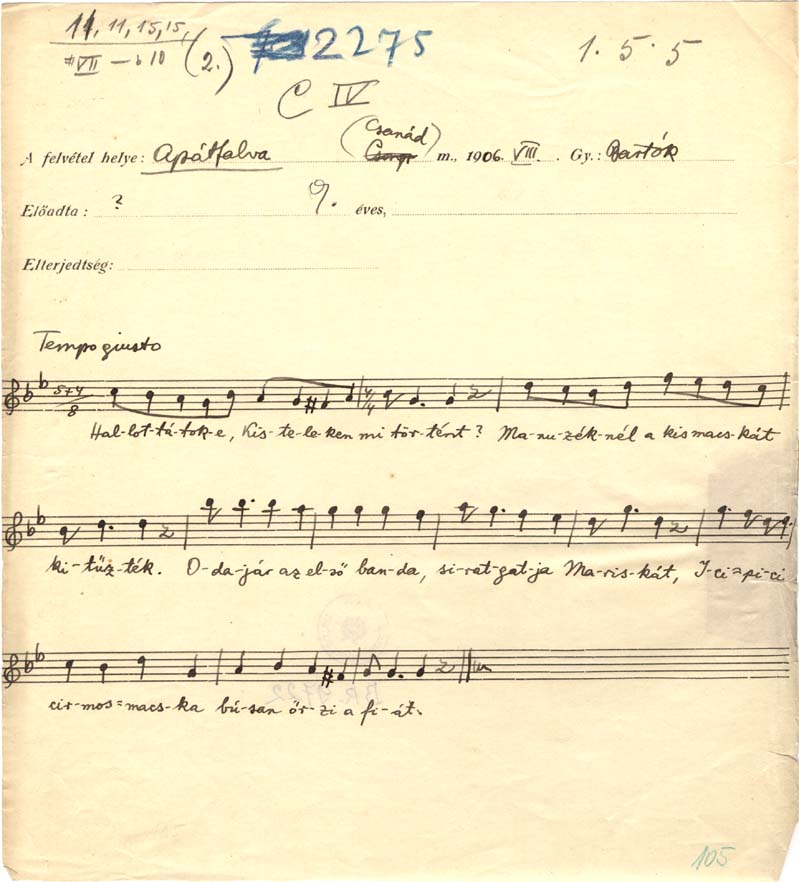 11, 11, 15, 15,
#VII – b10 (2.) 12275 1. 5. 5
C IV
(Csanád)
A felvétel helye: Apátfalva m., 1906. VIII. Gy.: Bartók
Előadta: ? éves,
Elterjedtség:
Tempo giusto
5+4/8 4/4
Hal-lot-tá-tok-e, Kis-te-le-ken mi tör-tént? Ma-nu-zék-nél a kis macs-kát
ki-tűz-ték. O-da-jár az el-ső ban-da, si-rat-gat-ja Ma-ris-kát, I-ci=pi-ci
cir-mos=macs-ka bú-san őr-zi a fi-át.
105